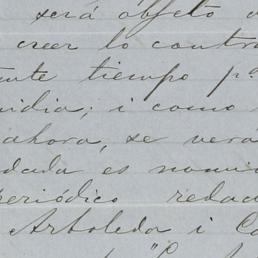 será objeto d
creer lo contra
ente tiempo pª
nidia; i como
ahora, se verá
dada es nomi
periódico redac
Arboleda i Co